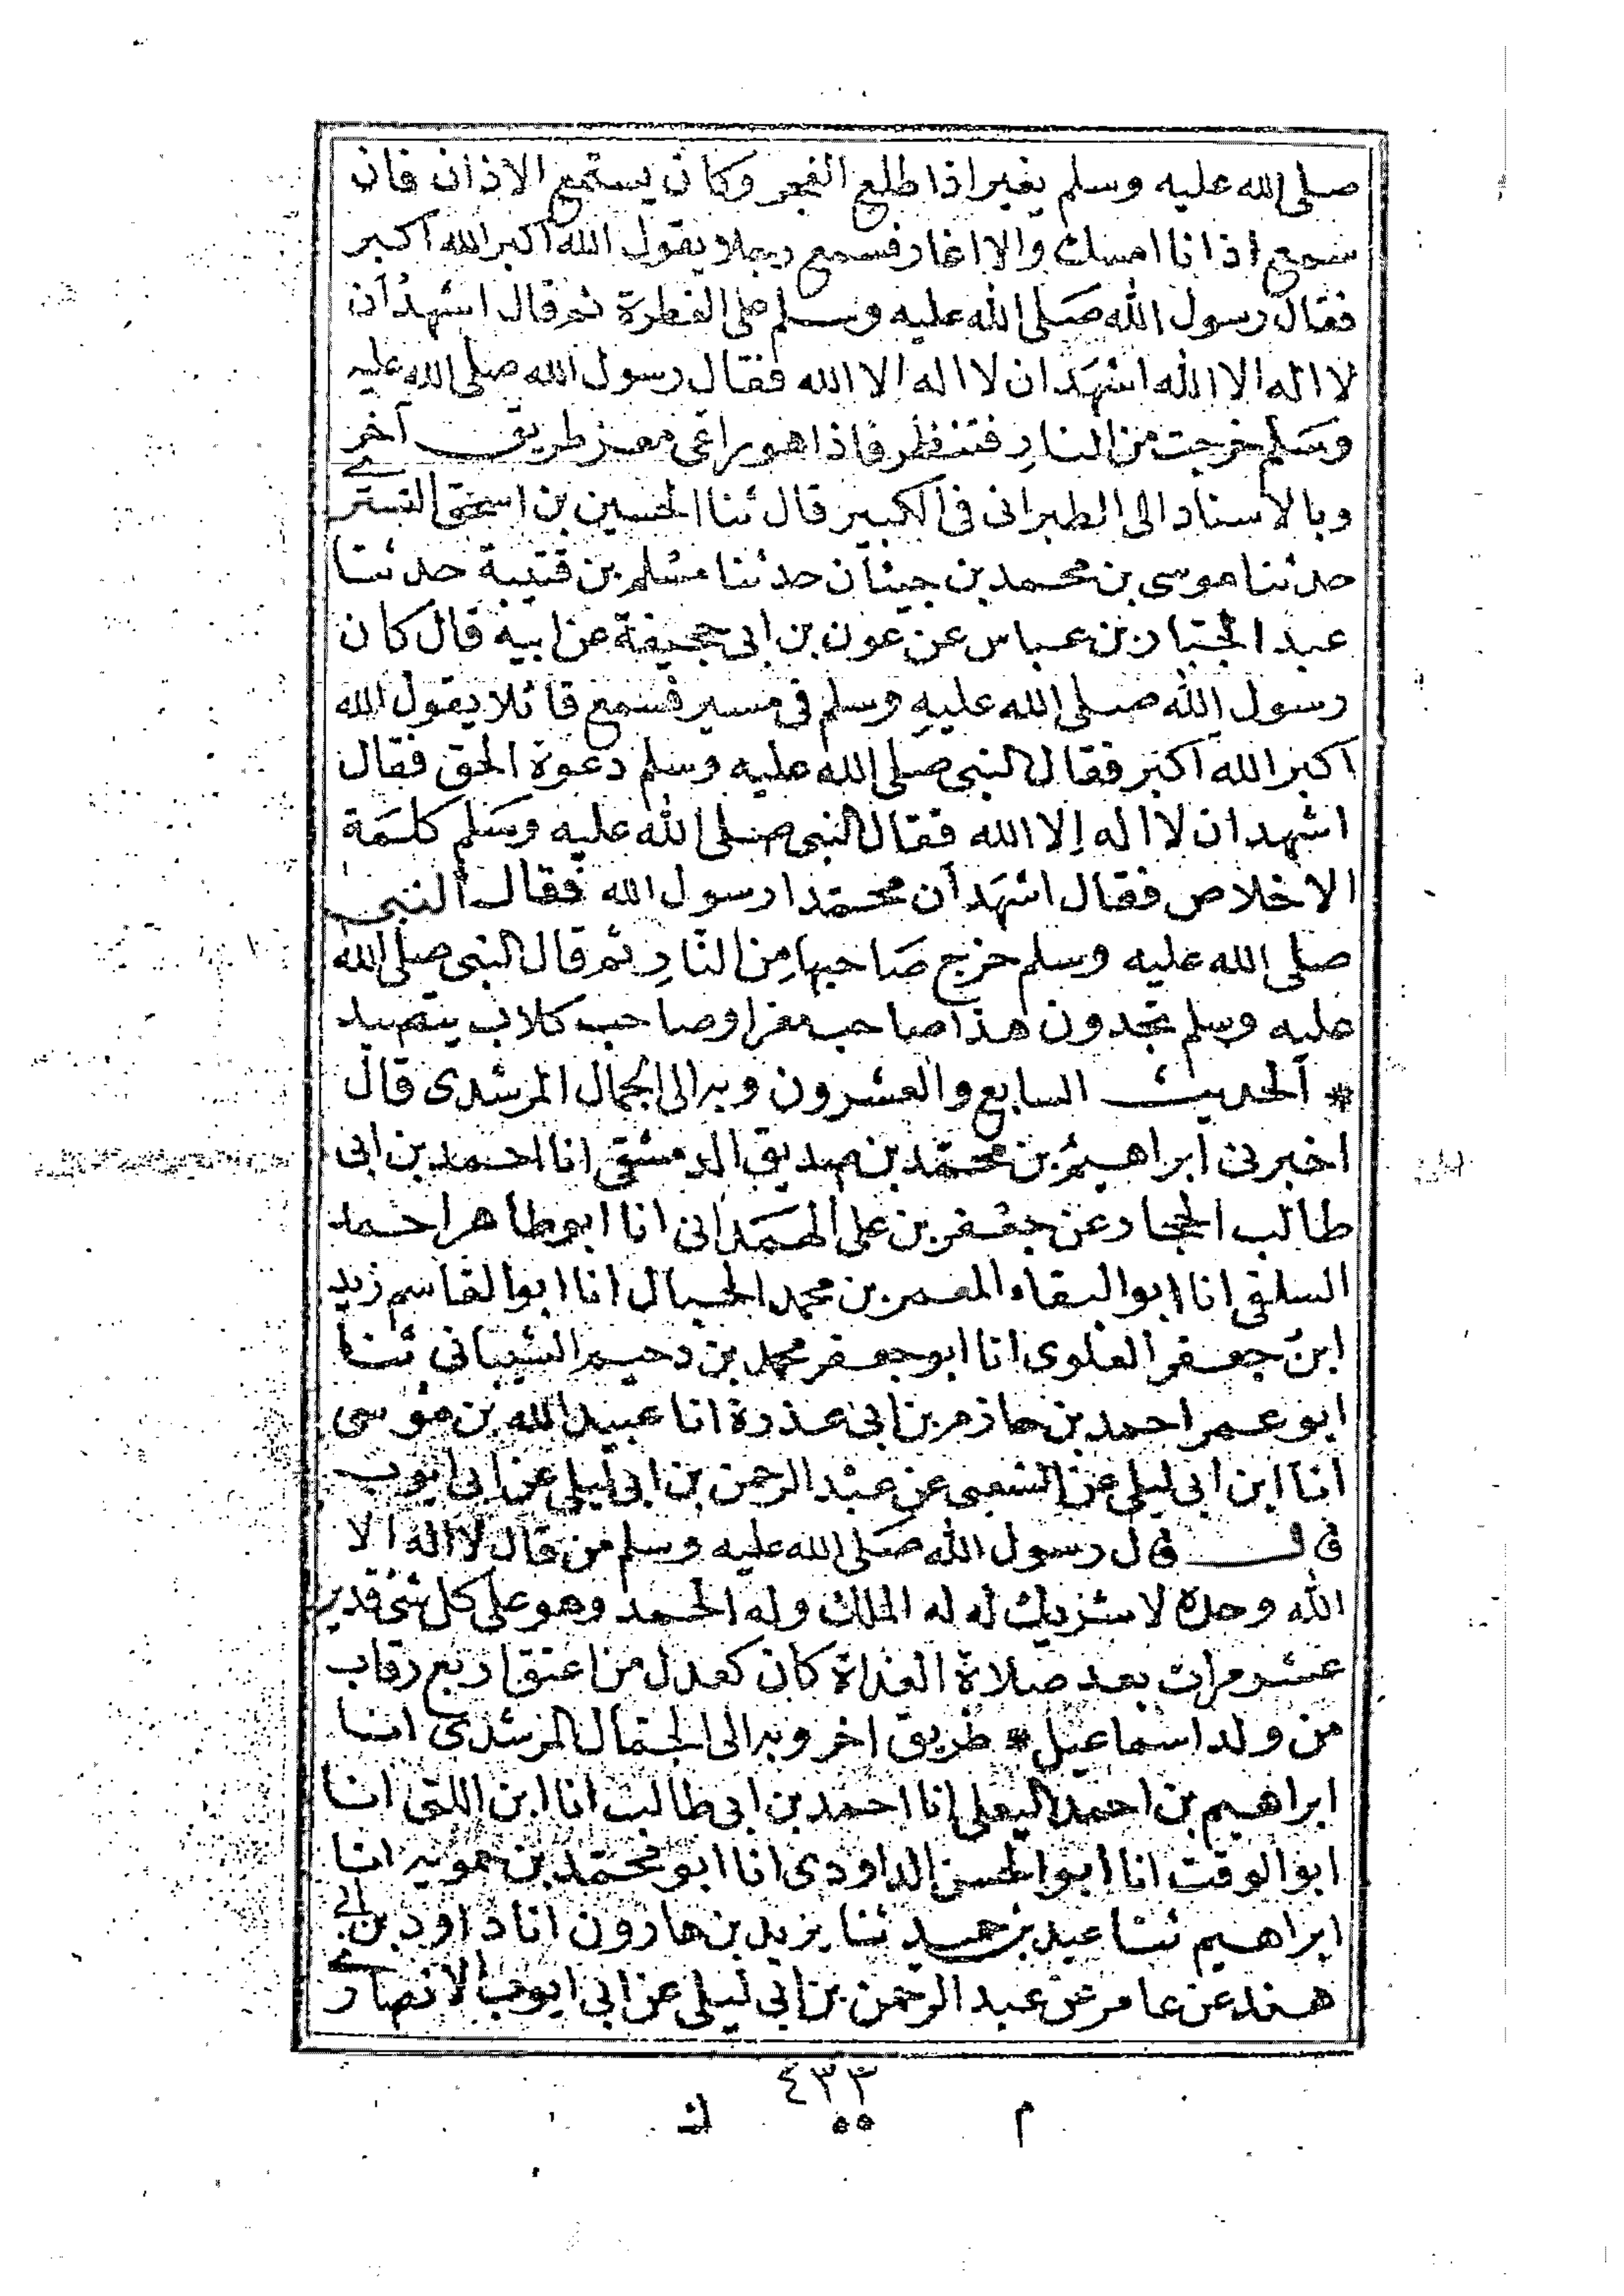 صلى الله عليه وسلم يغير اذا طلع الفجر وكان يستمع الاذان فان
سمع اذانا امسك والا اغار فسمع رجلا يقول الله اكبر الله اكبر
فقال رسول الله صَلى الله عليه وسلم على الفطرة ثم قال اشهدُ ان
لا اله الا الله اشهَد ان لا اله الا الله فقال رسول الله صلى الله عليه
وسَلم خرجت من النارِ فتنظر فاذا هو راعى معز طريق آخر
وبالاسناد الى الطبرانى فى الكبير قال ثنا الحسين بن اسحق التسترى
حدثنا موسى بن محمد بن حيان حدثنا مسلم بن قتيبة حدثنا
عبد الجبار بن عباس عن عون بن ابى جحيفة عن ابيه قال كان
رسول الله صلى الله عليهِ وسلم فى مسير فسمع قائلا يقول الله
اكبر الله اكبر فقال النبى صلى الله عليه وسلم دعوة الحق فقال
اشهد ان لا اله اِلا الله فقال النبى صلى الله عليه وسَلم كلمَة
الاخلاص فقال اشهَد ان محمّدا رسول الله فقال النبى
صلى الله عليه وسلم خرج صَاحبها مِن النّارِ ثم قال النبى صلى الله
عليه وسلم تجدون هذا صاحب معزا وصاحب كلاب يتصيد
* الحديث السابع والعشرون وبه الى الجمال المرشدى قال
اخبرنى ابراهيم بن محمّد بن صديق الدمشقى انا احمد بن ابى
طالب الحجار عن جعفر بن على الهمَدانى انا ابو طاهر احمد
السلفى انا ابو البقاء المعمر بن محمد الحبال انا ابو القاسم زيد
ابن جعفر العلوى انا ابو جعفر محمد بن دحيم الشيبانى ثنا
ابو عمر احمد بن حازم بن ابى عذرة انا عبيد الله بن موسى
انا ابن ابى ليلى عن الشعبى عن عبد الرحمن بن ابى ليلى عن ابى ايوب
قال قال رسول الله صَلى الله عليه وسلم من قال لا اله الا
الله وحده لا شريك له له الملك وله الحمد وهو على كل شئ قدير
عشر مرات بعد صلاة الغداة كان كعدل من اعتق اربع رقاب
من ولد اسماعيل * طريق اخر وبه الى الجمال المرشدى انا
ابراهيم بن احمد البعلى انا احمد بن ابى طالب انا ابن اللتى انا
ابو الوقت انا ابو الحسن الداودى انا ابو محمّد بن حمويه انا
ابراهيم ثنا عبد بن حميد ثنا يزيد بن هارون انا داود بن ابى
هند عن عامر عن عبد الرحمن بن ابى ليلى عن ابى ايوب الانصارى
٤٣٣
م ٥٥ ك